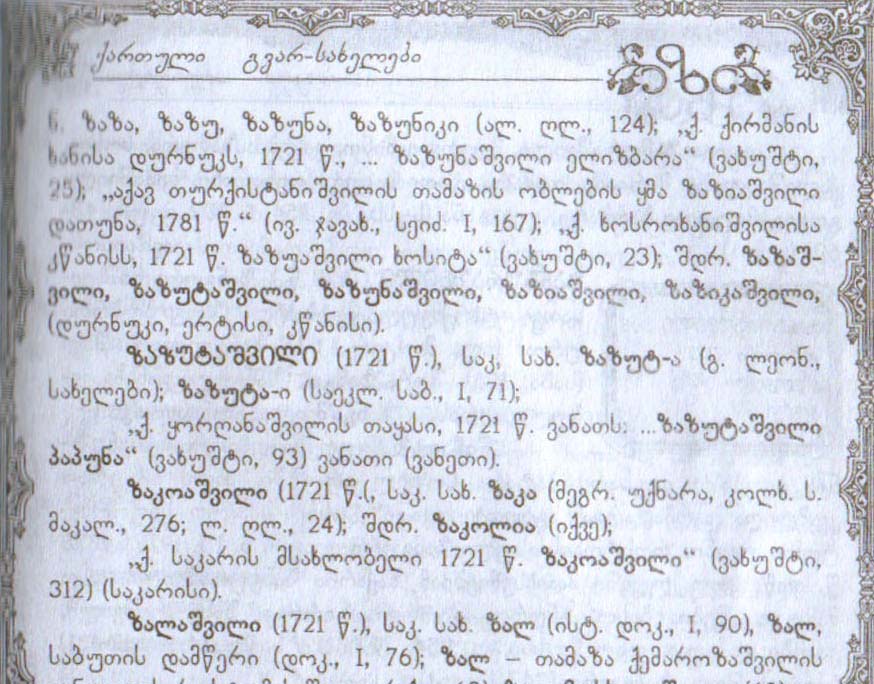 ქართული გვარ-სახელები
ზაზა, ზაზუ, ზაზუნა, ზაზუნიკი (ალ. ღლ., 124); „ქ. ქირმანის
ხანისა დურნუკს, 1721 წ., ... ზაზუნაშვილი ელიზბარა“ (ვახუშტი,
25); „აქავ თურქისტანიშვილის თამაზის ობლების ყმა ზაზიაშვილი
დათუნა, 1781 წ.“ (ივ. ჯავახ., სეიძ. I, 167); „ქ. ხოსროხანიშვილისა
კწანისს, 1721 წ. ზაზუაშვილი ხოსიტა“ (ვახუშტი, 23); შდრ. ზაზაშ-
ვილი, ზაზუტაშვილი, ზაზუნაშვილი, ზაზიაშვილი, ზაზიკაშვილი,
(დურნუკი, ერტისი, კწანისი).
ზაზუტაშვილი (1721 წ.), საკ, სახ. ზაზუტ-ა (გ. ლეონ.,
სახელები); ზაზუტა-ი (საეკლ. საბ., I, 71);
„ქ. ყორღანაშვილის თაყასი, 1721 წ. ვანათს: ...ზაზუტაშვილი
პაპუნა“ (ვახუშტი, 93) ვანათი (ვანეთი).
ზაკოაშვილი (1721 წ.(, საკ. სახ. ზაკა (მეგრ. უქხარა, კოლხ. ს.
მაკალ., 276; ლ. ღლ., 24); შდრ. ზაკოლია (იქვე);
„ქ. საკარის მსახლობელი 1721 წ. ზაკოაშვილი“ (ვახუშტი,
312) (საკარისი).
ზალაშვილი (1721 წ.), საკ. სახ. ზალ (ისტ. დოკ., I, 90), ზალ,
საბუთის დამწერი (დოკ., I, 76); ზალ – თამაზა ქემაროზაშვილის